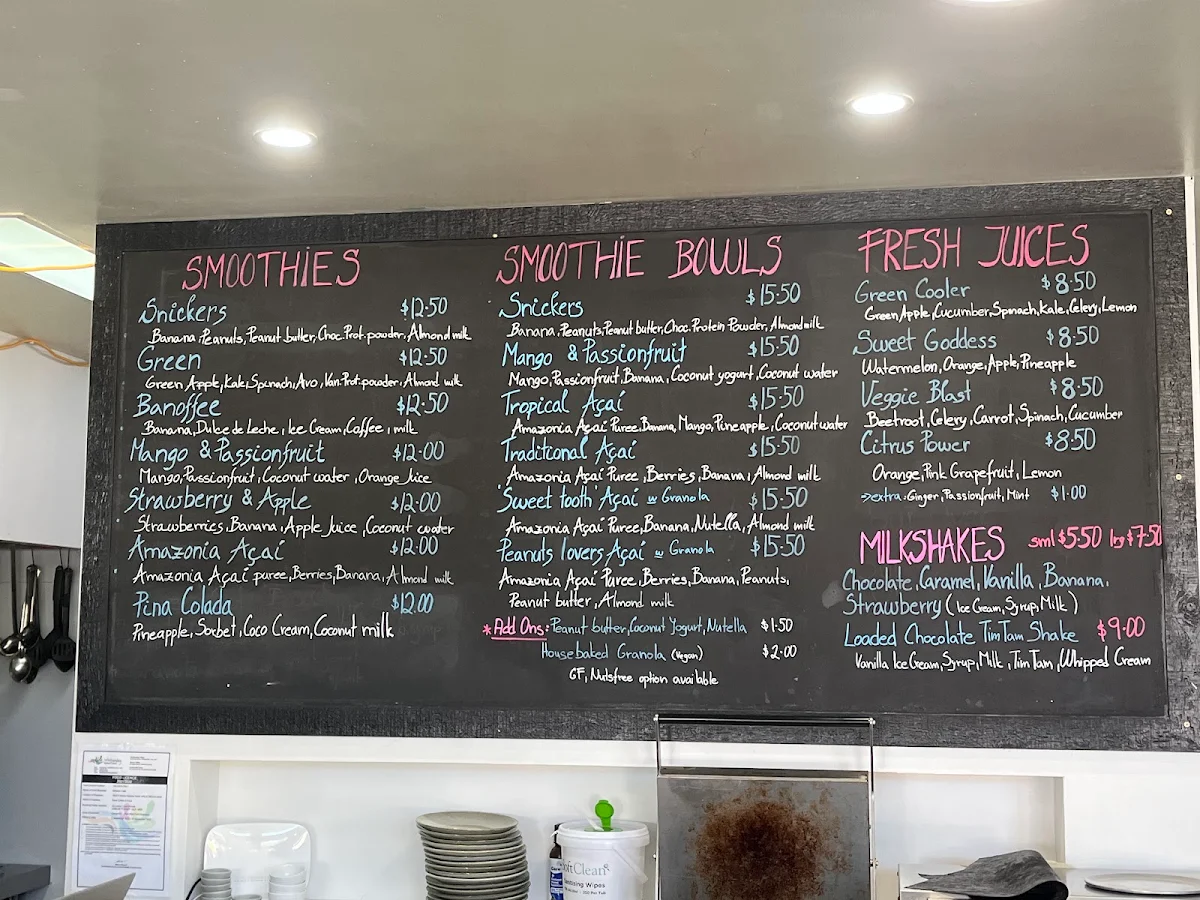 SMOOTHIES
Snickers $12.50
Banana, Peanuts, Peanut butter, Choc. Prot. powder, Almond milk
Green $12.50
Green Apple, Kale, Spinach, Avo, Van. Prot. powder, Almond milk
Banoffee $12.50
Banana, Dulce de Leche, Ice Cream, Coffee, milk
Mango & Passionfruit $12.00
Mango, Passionfruit, Coconut water, Orange Juice
Strawberry & Apple $12.00
Strawberries, Banana, Apple Juice, Coconut water
Amazonia Açaí $12.00
Amazonia Açaí puree, Berries, Banana, Almond milk
Pina Colada $12.00
Pineapple, Sorbet, Coco Cream, Coconut milk
SMOOTHIE BOWLS
Snickers $15.50
Banana, Peanuts, Peanut butter, Choc. Protein Powder, Almond milk
Mango & Passionfruit $15.50
Mango, Passionfruit, Banana, Coconut yogurt, Coconut water
Tropical Açaí $15.50
Amazonia Açaí Puree, Banana, Mango, Pineapple, Coconut water
Traditional Açaí $15.50
Amazonia Açaí Puree, Berries, Banana, Almond milk
'Sweet tooth' Açaí w Granola $15.50
Amazonia Açaí Puree, Banana, Nutella, Almond milk
Peanuts lovers Açaí w Granola $15.50
Amazonia Açaí Puree, Berries, Banana, Peanuts,
Peanut butter, Almond milk
*Add Ons: Peanut butter, Coconut Yogurt, Nutella $1.50
House baked Granola (Vegan) $2.00
GF, Nutsfree option available
FRESH JUICES
Green Cooler $8.50
Green Apple, Cucumber, Spinach, Kale, Celery, Lemon
Sweet Goddess $8.50
Watermelon, Orange, Apple, Pineapple
Veggie Blast $8.50
Beetroot, Celery, Carrot, Spinach, Cucumber
Citrus Power $8.50
Orange, Pink Grapefruit, Lemon
→extra: Ginger, Passionfruit, Mint $1.00
MILKSHAKES sml $5.50 lrg $7.50
Chocolate, Caramel, Vanilla, Banana,
Strawberry (Ice Cream, Syrup, Milk)
Loaded Chocolate TimTam Shake $9.00
Vanilla Ice Cream, Syrup, Milk, Tim Tam, Whipped Cream
Clean
Wipes